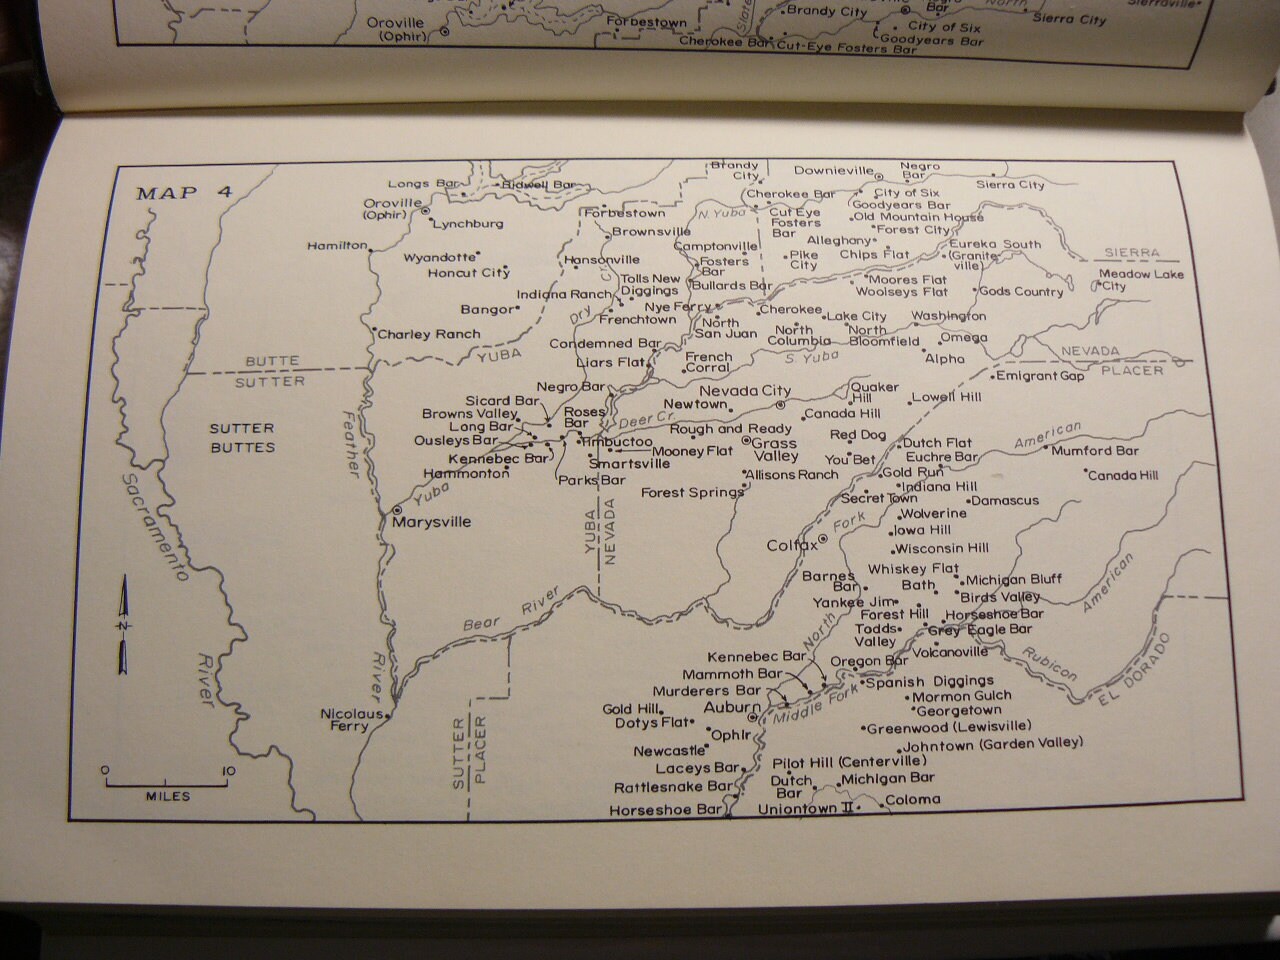 Oroville
(Ophir)
Forbestown
Slate
Brandy City
Bar
North
Sierra City
Sierraville
City of Six
Goodyears Bar
Cherokee Bar
Cut-Eye Fosters Bar
MAP 4
Longs Bar
Bidwell Bar
Brandy
City
Downieville
Negro
Bar
Sierra City
Oroville
(Ophir)
Lynchburg
Forbestown
N. Yuba
Cherokee Bar
City of Six
Goodyears Bar
Cut Eye
Fosters
Bar
Old Mountain House
Forest City
Hamilton
Brownsville
Camptonville
Alleghany
Eureka South
(Granite-
ville)
SIERRA
Wyandotte
Honcut City
Hansonville
Fosters
Bar
Pike
City
Chips Flat
Meadow Lake
City
Tolls New
Diggings
Bullards Bar
Moores Flat
Woolseys Flat
Gods Country
Indiana Ranch
Bangor
Dry
Cr.
Frenchtown
Nye Ferry
Cherokee
Lake City
Washington
North
San Juan
North
Columbia
North
Bloomfield
Omega
Charley Ranch
Condemned Bar
Alpha
BUTTE
SUTTER
YUBA
Liars Flat
French
Corral
S. Yuba
NEVADA
PLACER
Emigrant Gap
Negro Bar
Nevada City
Quaker
Hill
Lowell Hill
Sicard Bar
Browns Valley
Long Bar
Ousleys Bar
Roses
Bar
Deer Cr.
Newtown
Canada Hill
SUTTER
BUTTES
Feather
Timbuctoo
Rough and Ready
Red Dog
Dutch Flat
American
Mumford Bar
Kennebec Bar
Mooney Flat
Grass
Valley
Euchre Bar
Hammonton
Smartsville
You Bet
Gold Run
Canada Hill
Parks Bar
Allisons Ranch
Indiana Hill
Yuba
Forest Springs
Secret Town
Damascus
Marysville
Sacramento
YUBA
NEVADA
Fork
Wolverine
Iowa Hill
Colfax
Wisconsin Hill
Whiskey Flat
Barnes
Bar
Bath
Michigan Bluff
Birds Valley
American
Yankee Jim
Forest Hill
Horseshoe Bar
N
Bear
River
Todds
Valley
Grey Eagle Bar
North
Volcanoville
Rubicon
EL DORADO
River
River
Kennebec Bar
Oregon Bar
Mammoth Bar
Spanish Diggings
Murderers Bar
Middle Fork
Mormon Gulch
Georgetown
Nicolaus
Ferry
Gold Hill
Auburn
Dotys Flat
Greenwood (Lewisville)
Ophir
SUTTER
PLACER
Newcastle
Johntown (Garden Valley)
Laceys Bar
Pilot Hill (Centerville)
0
10
MILES
Rattlesnake Bar
Dutch
Bar
Michigan Bar
Horseshoe Bar
Uniontown II
Coloma